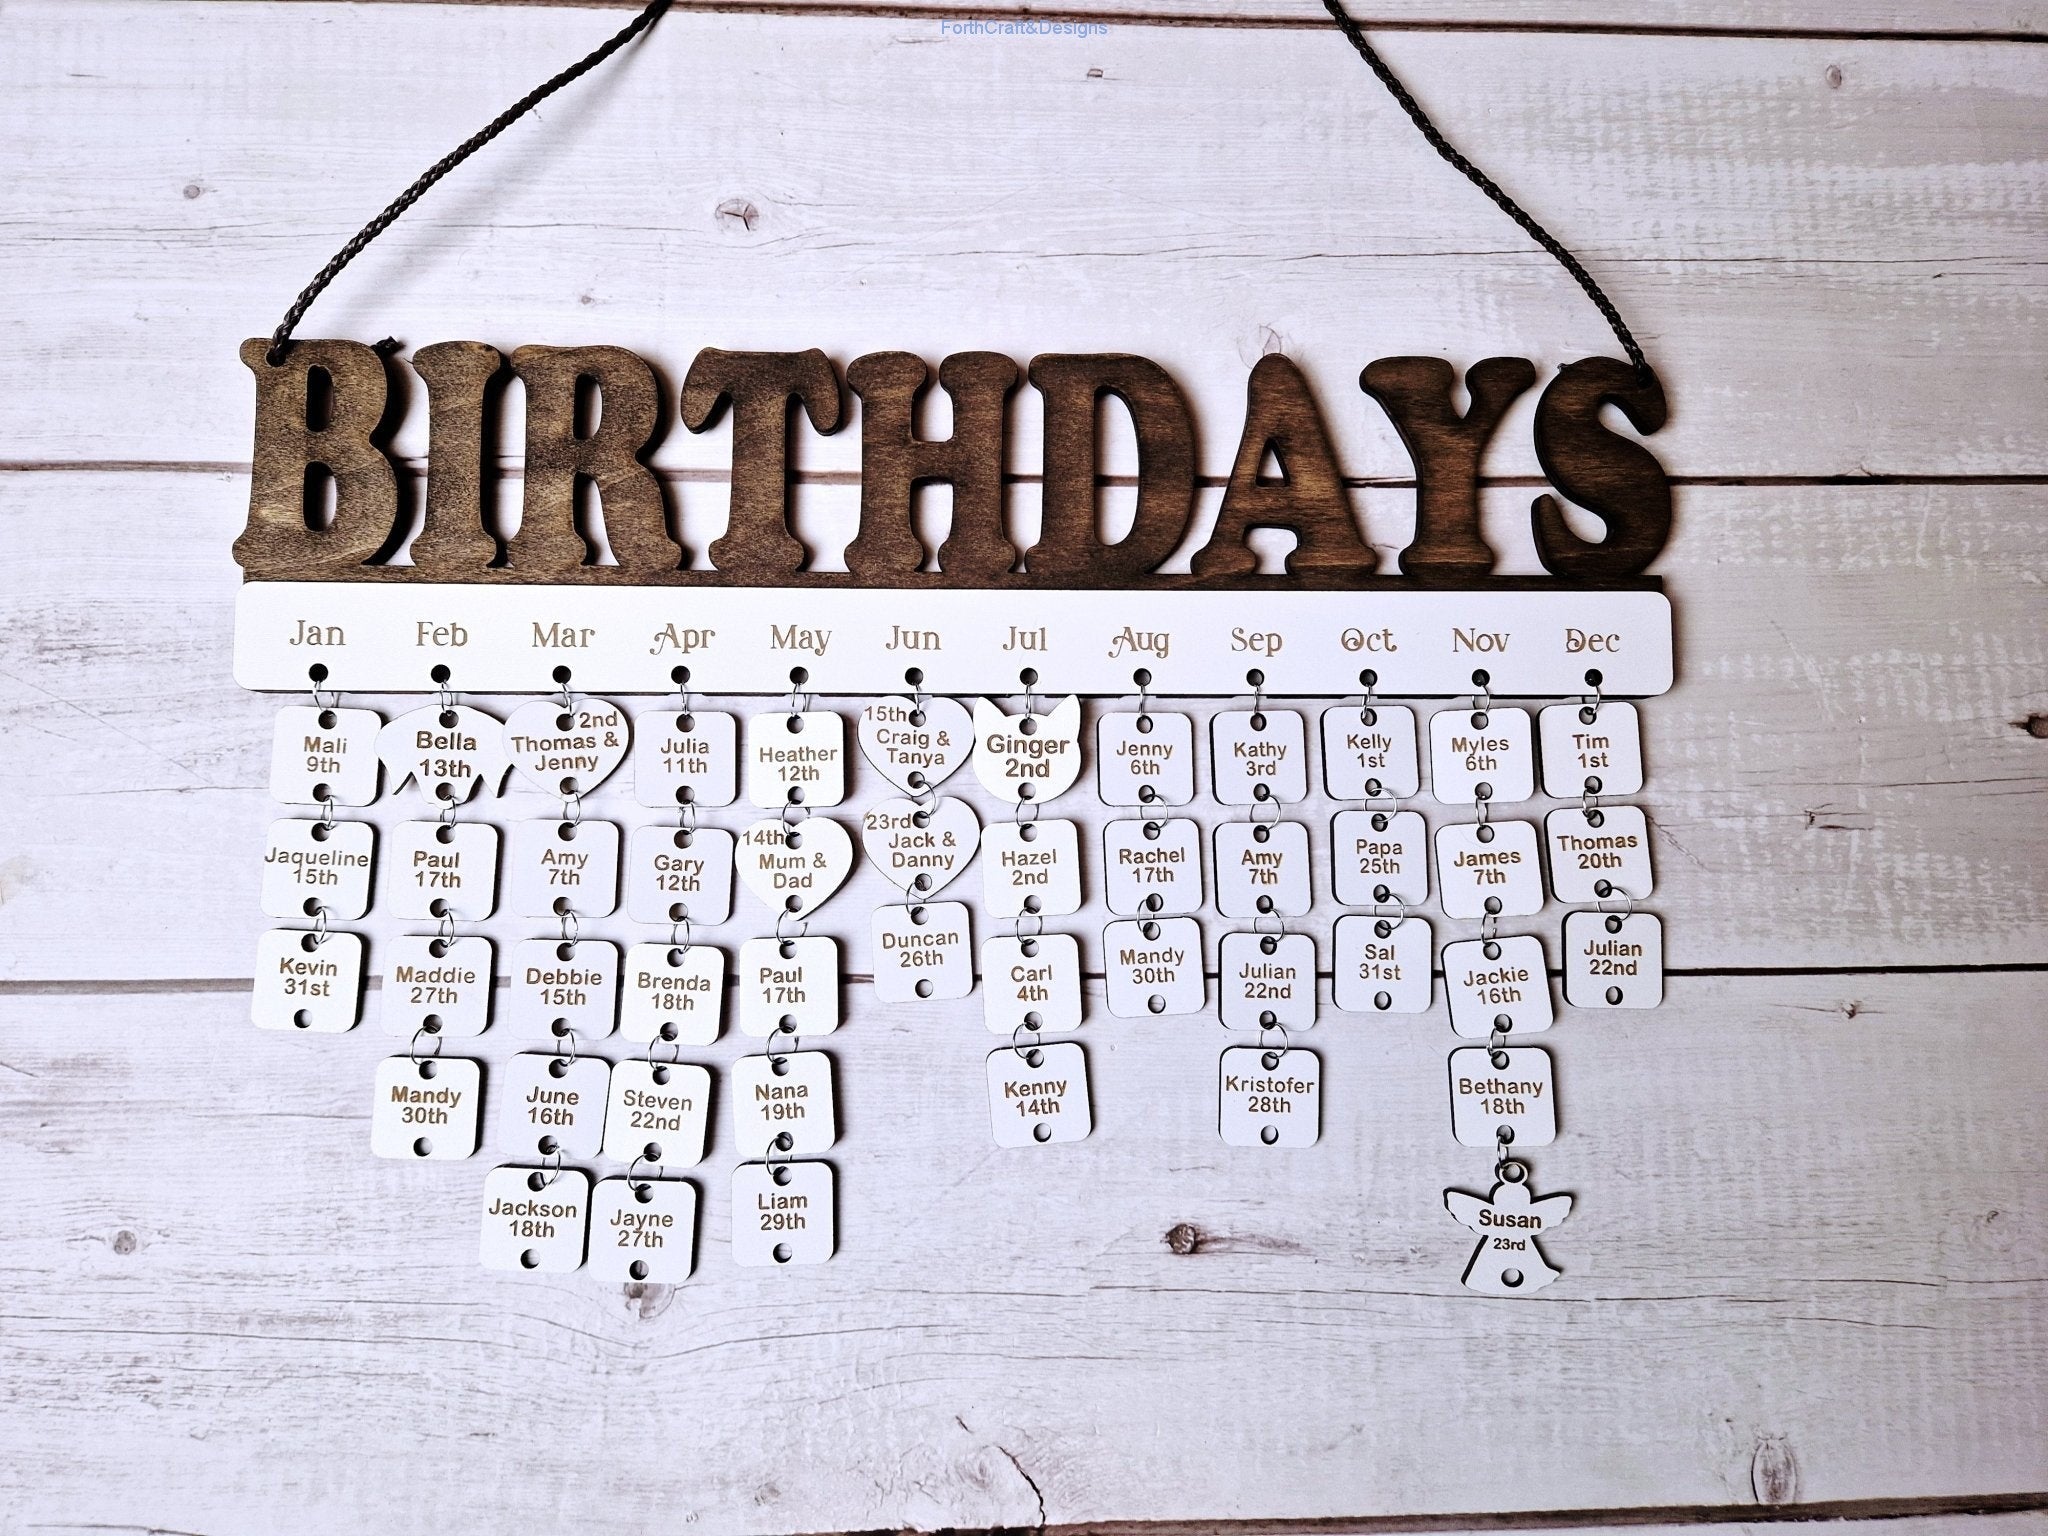 ForthCraft&Designs
BIRTHDAYS
Jan Feb Mar Apr May Jun Jul Aug Sep Oct Nov Dec
Mali
9th
Jaqueline
15th
Kevin
31st
Bella
13th
Paul
17th
Maddie
27th
Mandy
30th
2nd
Thomas &
Jenny
Amy
7th
Debbie
15th
June
16th
Jackson
18th
Julia
11th
Gary
12th
Brenda
18th
Steven
22nd
Jayne
27th
Heather
12th
14th
Mum &
Dad
Paul
17th
Nana
19th
Liam
29th
15th
Craig &
Tanya
23rd
Jack &
Danny
Duncan
26th
Ginger
2nd
Hazel
2nd
Carl
4th
Kenny
14th
Jenny
6th
Rachel
17th
Mandy
30th
Kathy
3rd
Amy
7th
Julian
22nd
Kristofer
28th
Kelly
1st
Papa
25th
Sal
31st
Myles
6th
James
7th
Jackie
16th
Bethany
18th
Susan
23rd
Tim
1st
Thomas
20th
Julian
22nd